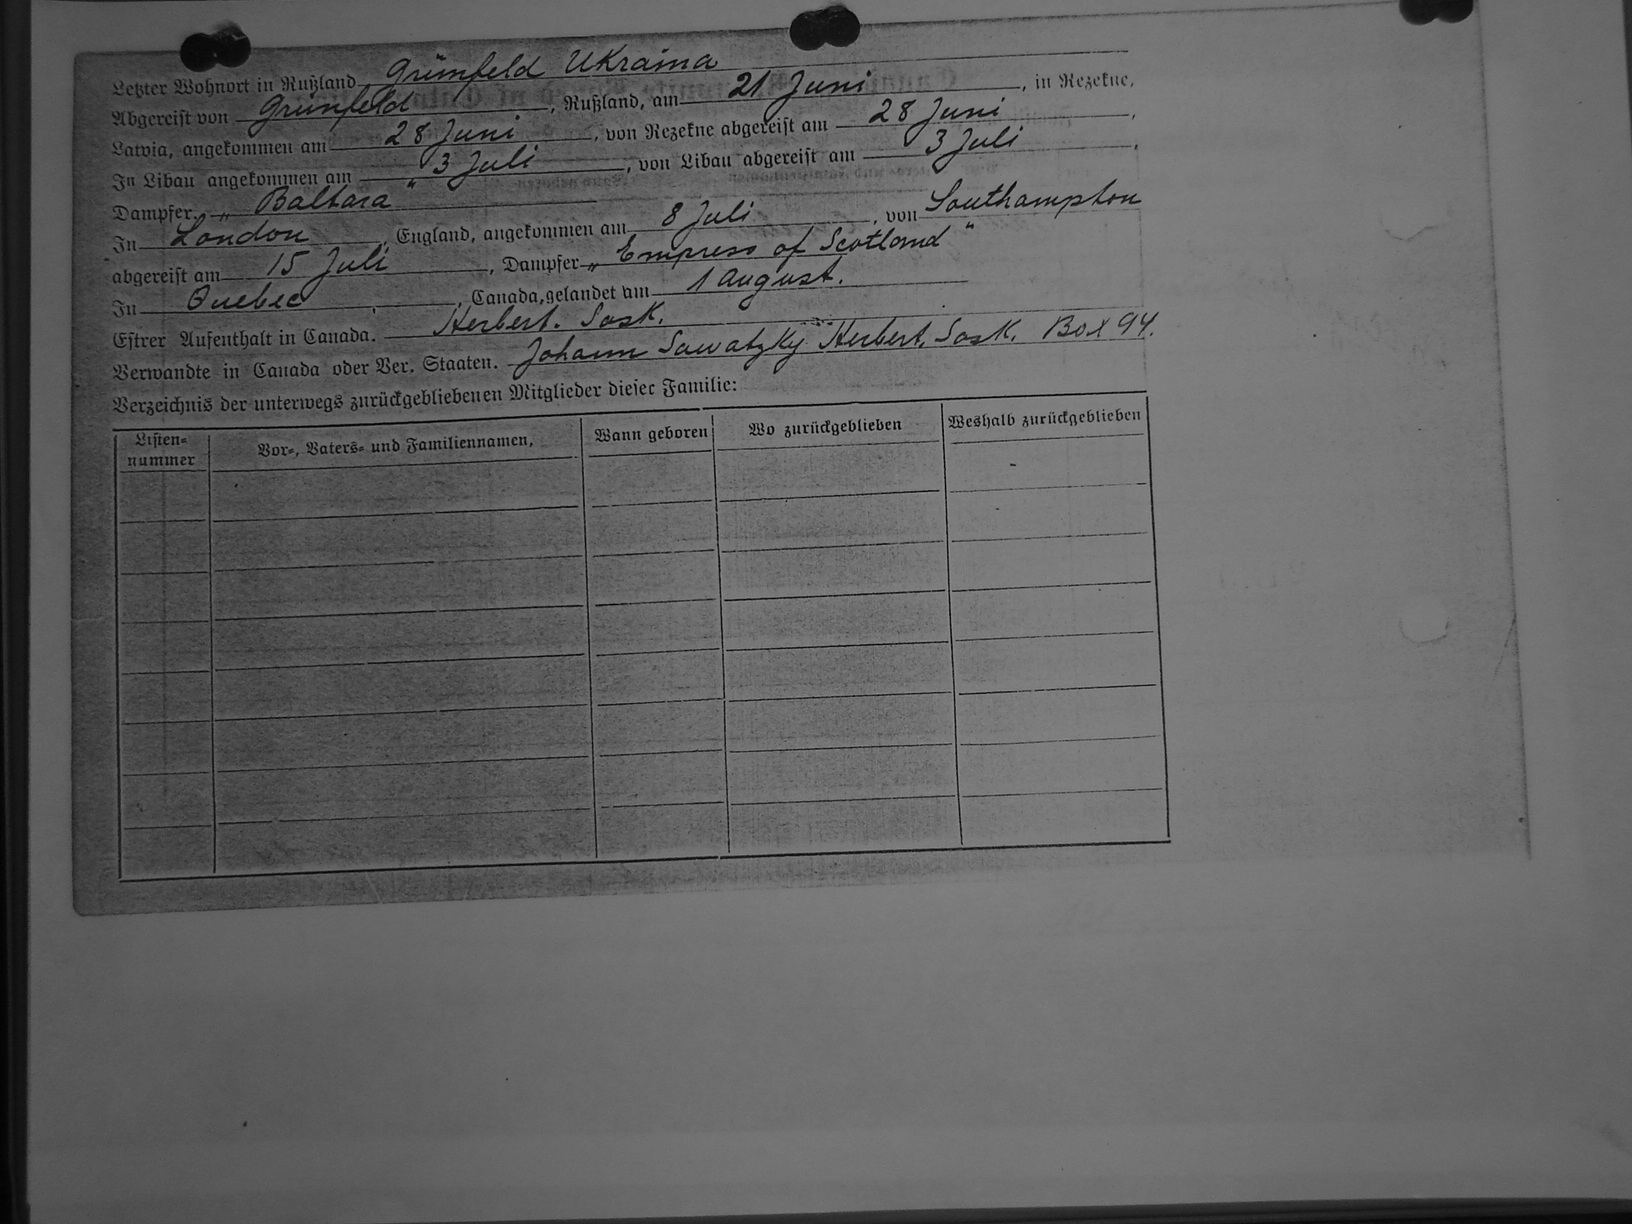 Letzter Wohnort in Rußland Grünfeld Ukraina
Abgereist von Grünfeld, Rußland, am 21 Juni, in Rezekne,
Latvia, angekommen am 28 Juni, von Rezekne abgereist am 28 Juni,
In Libau angekommen am 3 Juli, von Libau abgereist am 3 Juli,
Dampfer „Baltara“
In London, England, angekommen am 8 Juli, von Southampton
abgereist am 15 Juli, Dampfer „Empress of Scotland“
In Quebec, Canada, gelandet am 1 August.
Estrer Aufenthalt in Canada. Herbert. Sask.
Verwandte in Canada oder Ver. Staaten. Johann Sawatzky Herbert, Sask. Box 94.
Verzeichnis der unterwegs zurückgebliebenen Mitglieder dieser Familie:
Listen-nummer Vor-, Vaters- und Familiennamen, Wann geboren Wo zurückgeblieben Weshalb zurückgeblieben